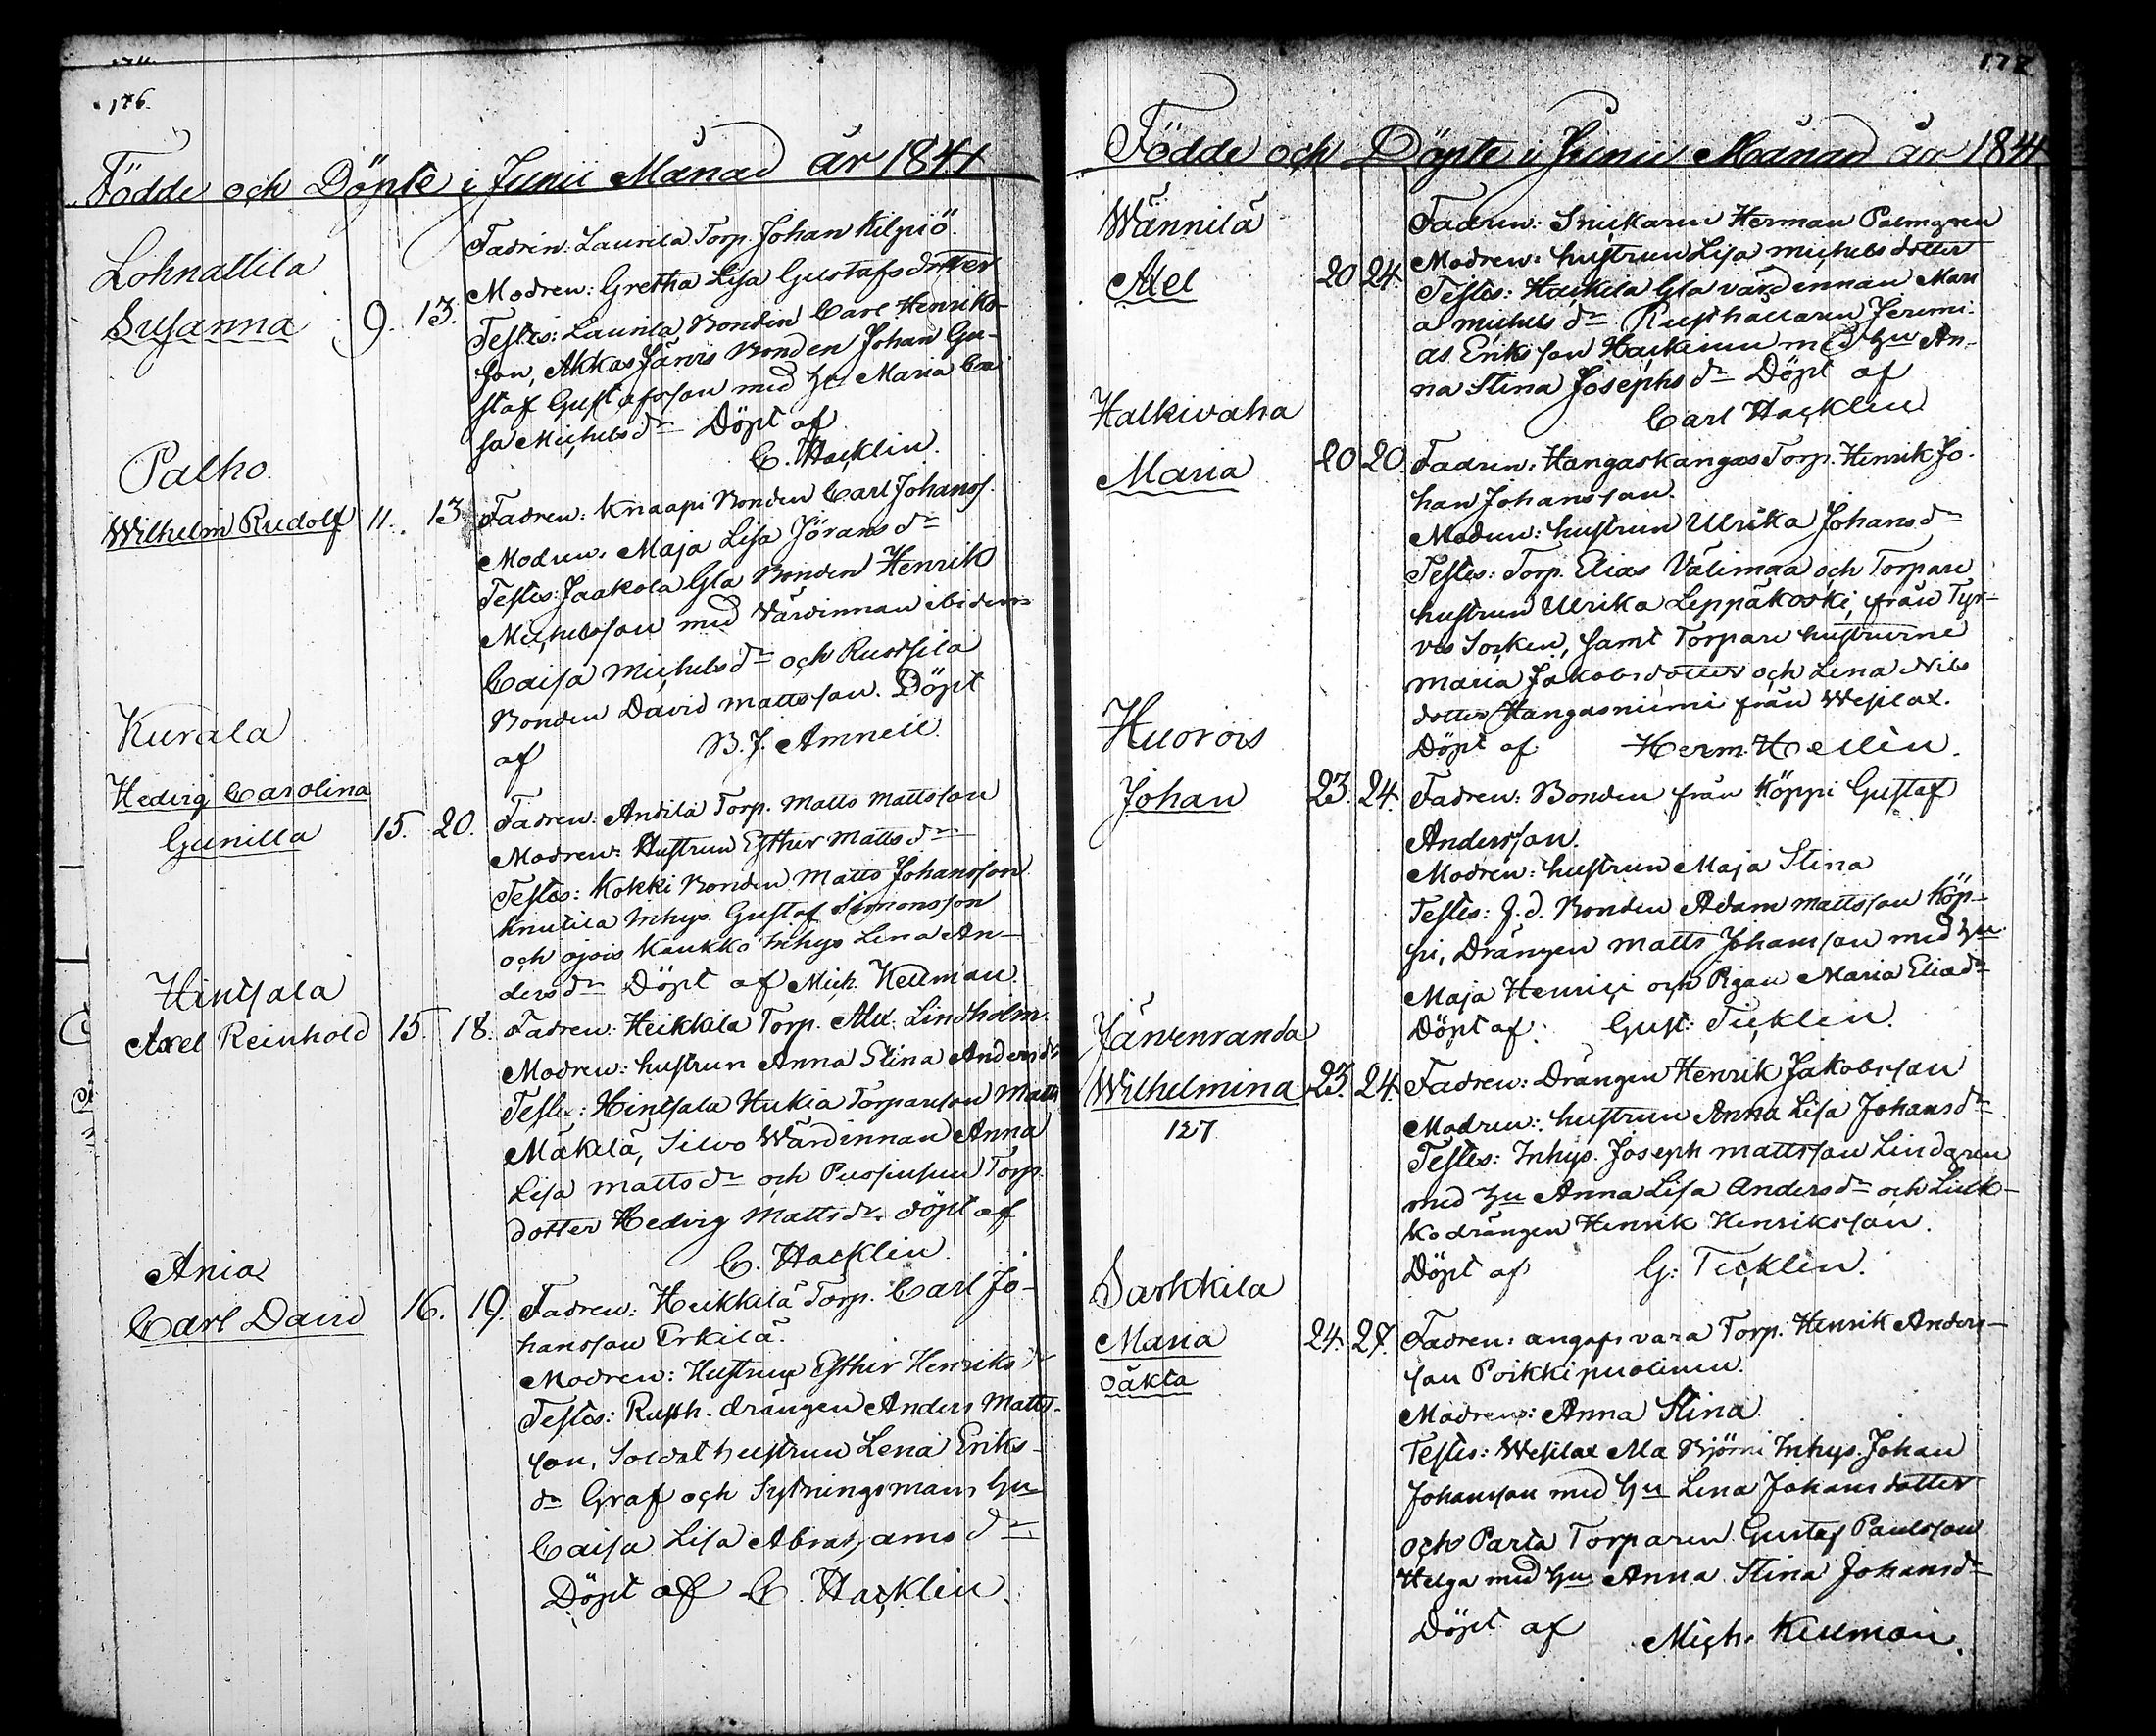 176.
Födde och Döpte i Junii Månad år 1841
Lohnattila
Susanna 9. 13.
Fadren: Laurila Torp. Johan Kilpiö.
Modren: Gretha Lisa Gustafsdotter
Testes: Laurila Bonden Carl Henriks-
son, Akkas Järvis Bonden Johan Gu-
staf Gustafsson med hu Maria Cai
sa Michelsdr Döpt af
C. Hacklin.
Palho.
Wilhelm Rudolf 11. 13.
Fadren: Knaapi Bonden Carl Johanss.
Modren: Maja Lisa Jöransdr
Testes: Jaakola Gla Bonden Henrik
Michelsson med Värdinnan ibidem
Caisa Michelsdr och Ruotsila
Bonden David Mattsson. Döpt
af B. J. Amnell.
Kurala
Hedvig Carolina
Gunilla 15. 20.
Fadren: Antila Torp. Matts Mattsson
Modren: Hustrun Esther Mattsdr
Testes: Kokki Bonden Matts Johansson
Knutila Inhys. Gustaf Simonsson
och ojois Kaukko Inhys Lena An-
dersdr Döpt af Mich. Kellman.
Hintsala
Axel Reinhold 15. 18.
Fadren: Heikkila Torp. Alex. Lindholm.
Modren: hustrun Anna Stina Andersdr
Testes: Hintsala Hukia Torpareson Matts
Mäkelä, Silvo Wärdinnan Anna
Lisa Mattsdr och Torp.
dotter Hedvig Mattsdr. döpt af
C. Hacklin
Ania
Carl David 16. 19.
Fadren: Heikkilä Torp. Carl Jo-
hansson Erkilä.
Modren: Hustrun Esther Henriksdr
Testes: Rusth. drängen Anders Matts-
son, Soldat hustrun Lena Eriks-
dr Graf och Sytningsmans hu
Caisa Lisa Abrahamsdr
Döpt af C. Hacklin.
177
Födde och Döpte i Junii Månad år 1841
Wännilä
Axel 20 24.
Fadren: Snickaren Herman Palmgren
Modren: hustrun Lisa Michelsdotter
Testes: Haikila Gla värdinnan Mari
a Michelsdr Rusthållaren Jeremi-
as Eriksson Haikinen med hu An-
na Stina Josephsdr Döpt af
Carl Hacklin
Halkivaha
Maria 20 20.
Fadren: Hangaskangas Torp. Henrik Jo-
han Johansson.
Modren: hustrun Ulrika Johansdr
Testes: Torp. Elias Välimaa och Torpare
hustrun Ulrika Leppäkoski, från Tyr-
vis Socken, samt Torpare hustrurne
Maria Jakobsdotter och Lena Nils
dotter Hangasniemi från Wesilax.
Döpt af Herm. Hellin.
Huorois
Johan 23. 24.
Fadren: Bonden från Köppi Gustaf
Andersson.
Modren: hustrun Maja Stina
Testes: J. d. Bonden Adam Mattsson Köp-
pi, Drängen Matts Johansson med hu
Maja Henrici och Pigan Maria Eliædr
Döpt af: Gust: Ticklén.
Järvenranda
Wilhelmina 23. 24.
127
Fadren: Drängen Henrik Jakobsson
Modren: hustrun Anna Lisa Johansdr
Testes: Inhys. Joseph Mattsson Lindgren
med hu Anna Lisa Andersdr och Liuk-
ko drängen Henrik Henriksson.
Döpt af G: Ticklén.
Sarkkila
Maria 24. 27.
oäkta
Fadren: angapsvara Torp. Henrik Anders-
son Poikkipuolinen.
Modren: Anna Stina
Testes: Wesilax Ala Björni Inhys. Johan
Johansson med hu Lena Johansdotter
och Parta Torparen Gustaf Paulsson
Helga med hu Anna Stina Johansdr
Döpt af Mich. Kellman.